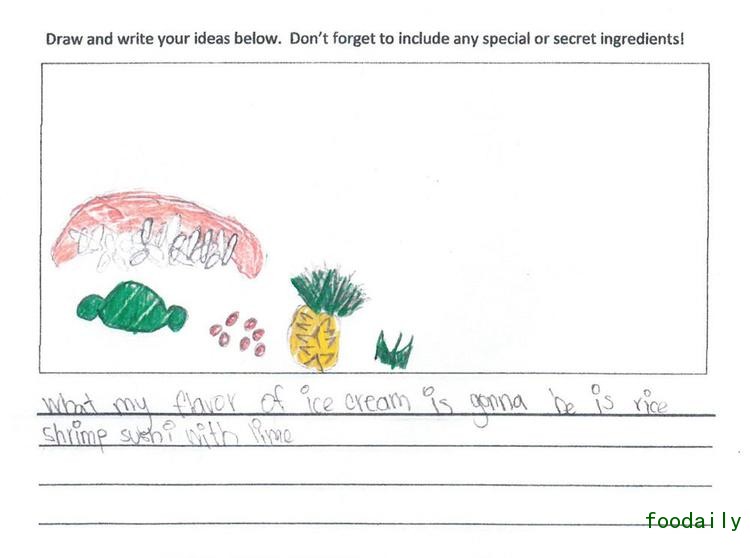 Draw and write your ideas below. Don't forget to include any special or secret ingredients!
what my flavor of ice cream is gonna be is rice
shrimp sushi with lime
foodaily